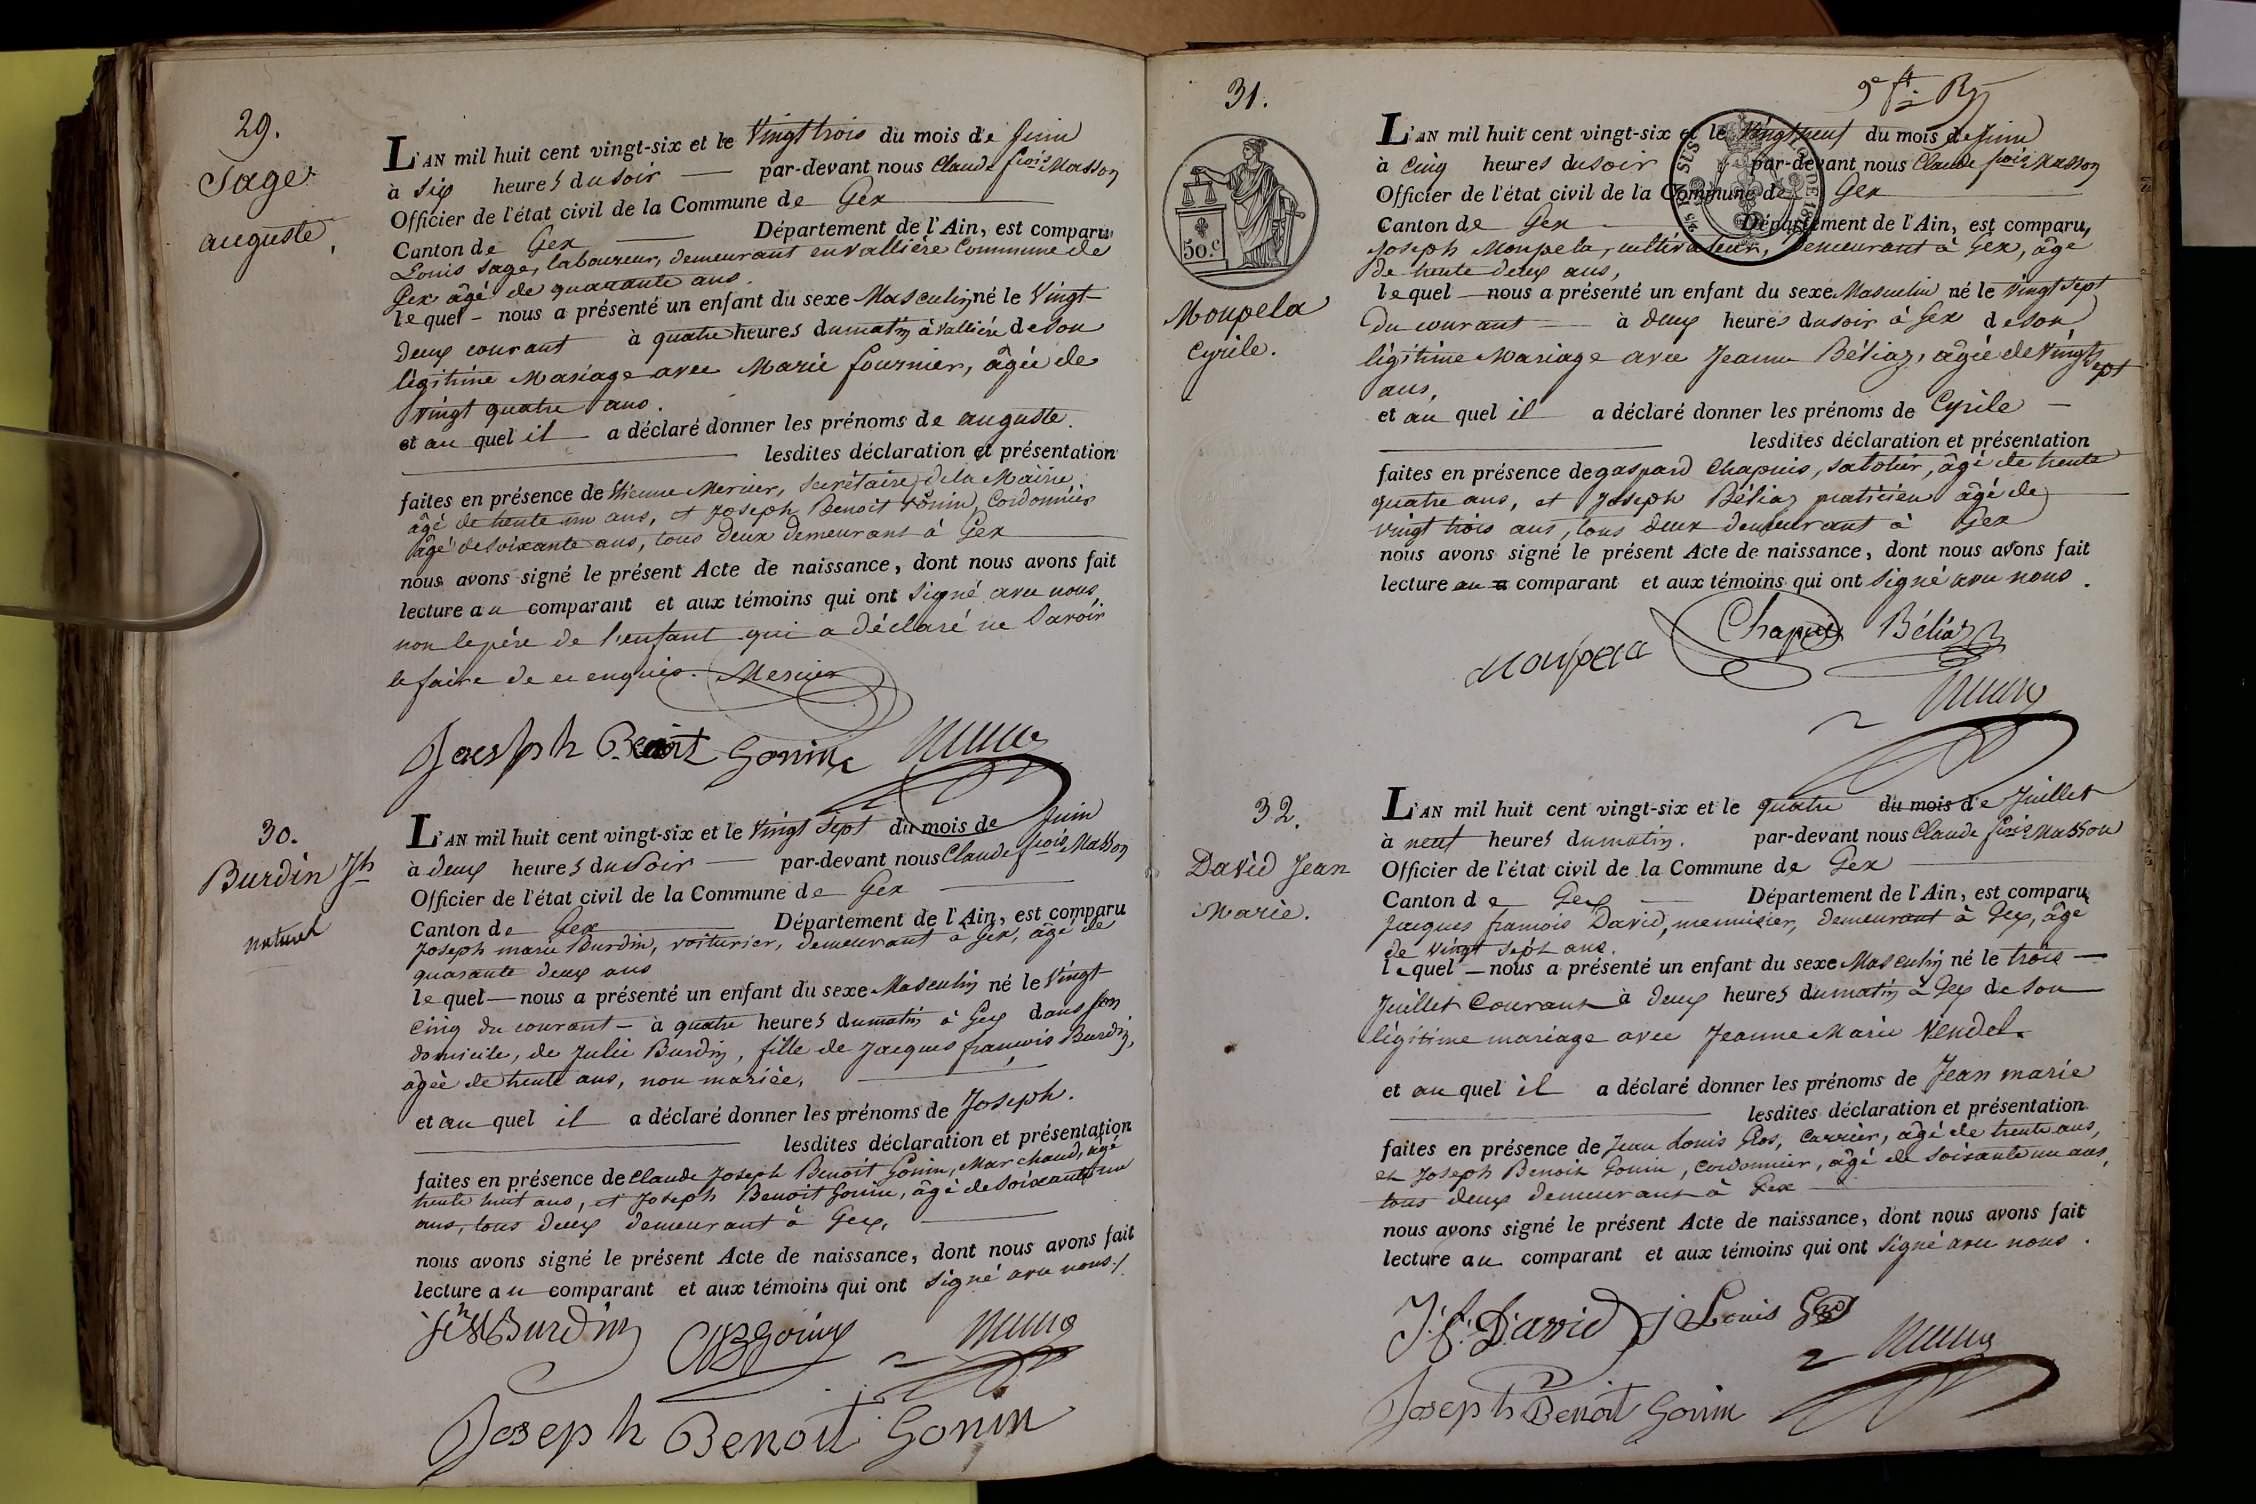 29.
Sage
auguste
L'AN mil huit cent vingt-six et le Vingt trois du mois de Juin
à Six heures du Soir par-devant nous Claude fcois Masson
Officier de l'état civil de la Commune de Gex
Canton de Gex Département de l'Ain, est comparu
Louis Sage, laboureur, demeurant en Vallière Commune de
Gex âgé de quarante ans.
lequel nous a présenté un enfant du sexe Masculin né le Vingt-
deux courant à quatre heures du matin à Vallière de Son
légitime Mariage avec Marie fournier, âgée de
Vingt quatre ans.
et au quel il a déclaré donner les prénoms de auguste.
lesdites déclaration et présentation
faites en présence de Etienne Mercier, Secrétaire de la Mairie
âgé de trente un ans, et Joseph Benoit Gonin, Cordonnier
âgé de Soixante ans, tous deux demeurant à Gex
nous avons signé le présent Acte de naissance, dont nous avons fait
lecture au comparant et aux témoins qui ont Signé avec nous
non le père de l'enfant qui a déclaré ne Savoir
le faire de ce enquis. Mercier
Joesph Benoit Gonin
30.
Burdin Jh
naturel
L'AN mil huit cent vingt-six et le Vingt Sept du mois de Juin
à deux heures du Soir par-devant nous Claude fcois Masson
Officier de l'état civil de la Commune de Gex
Canton de Gex Département de l'Ain, est comparu
Joseph marie Burdin, voiturier, demeurant à Gex, âgé de
quarante deux ans
lequel nous a présenté un enfant du sexe Masculin né le Vingt
Cinq du courant à quatre heures du matin à Gex dans Son
domicile, de Julie Burdin, fille de Jacques françois Burdin,
âgée de trente ans, non mariée,
et au quel il a déclaré donner les prénoms de Joseph.
lesdites déclaration et présentation
faites en présence de Claude Joseph Benoit Gonin, Marchand, âgé
trente huit ans, et Joseph Benoit Gonin, âgé de Soixante un
ans, tous deux demeurant à Gex,
nous avons signé le présent Acte de naissance, dont nous avons fait
lecture au comparant et aux témoins qui ont Signé avec nous
Burdin
Joseph Benoit Gonin
31.
50.c
Moupela
Cyrile.
L'AN mil huit cent vingt-six et le Vingt neuf du mois de Juin
à Cinq heures du soir par-devant nous Claude fcois Masson
Officier de l'état civil de la Commune de Gex
Canton de Gex Département de l'Ain, est comparu,
Joseph Moupela, cultivateur, demeurant à Gex, âgé
de trente deux ans,
lequel nous a présenté un enfant du sexe Masculin né le Vingt Sept
du courant à deux heures du soir à Gex de son
légitime Mariage avec Jeanne Béliaz, âgée de Vingt Sept
ans,
et au quel il a déclaré donner les prénoms de Cyrile
lesdites déclaration et présentation
faites en présence de gaspard Chapuis, sabotier, âgé de trente
quatre ans, et Joseph Béliaz praticien âgé de
vingt trois ans, tous deux demeurant à Gex
nous avons signé le présent Acte de naissance, dont nous avons fait
lecture au comparant et aux témoins qui ont Signé avec nous.
Moupela Chapuis Béliaz
32.
David Jean
Marie.
L'AN mil huit cent vingt-six et le quatre du mois de Juillet
à neuf heures du matin. par-devant nous Claude fcois Masson
Officier de l'état civil de la Commune de Gex
Canton de Gex Département de l'Ain, est comparu
Jacques françois David, menuisier, demeurant à Gex, âgé
de vingt sept ans.
lequel nous a présenté un enfant du sexe Masculin né le trois
Juillet Courant à deux heures du matin à Gex de Son
légitime mariage avec Jeanne Marie Vendel.
et au quel il a déclaré donner les prénoms de Jean marie
lesdites déclaration et présentation
faites en présence de Jean Louis Gros, Carrier, âgé de trente ans,
et Joseph Benoit Gonin, Cordonnier, âgé de Soixante un ans,
tous deux demeurant à Gex
nous avons signé le présent Acte de naissance, dont nous avons fait
lecture au comparant et aux témoins qui ont Signé avec nous.
J. f. David j Louis Gros
Joseph Benoit Gonin